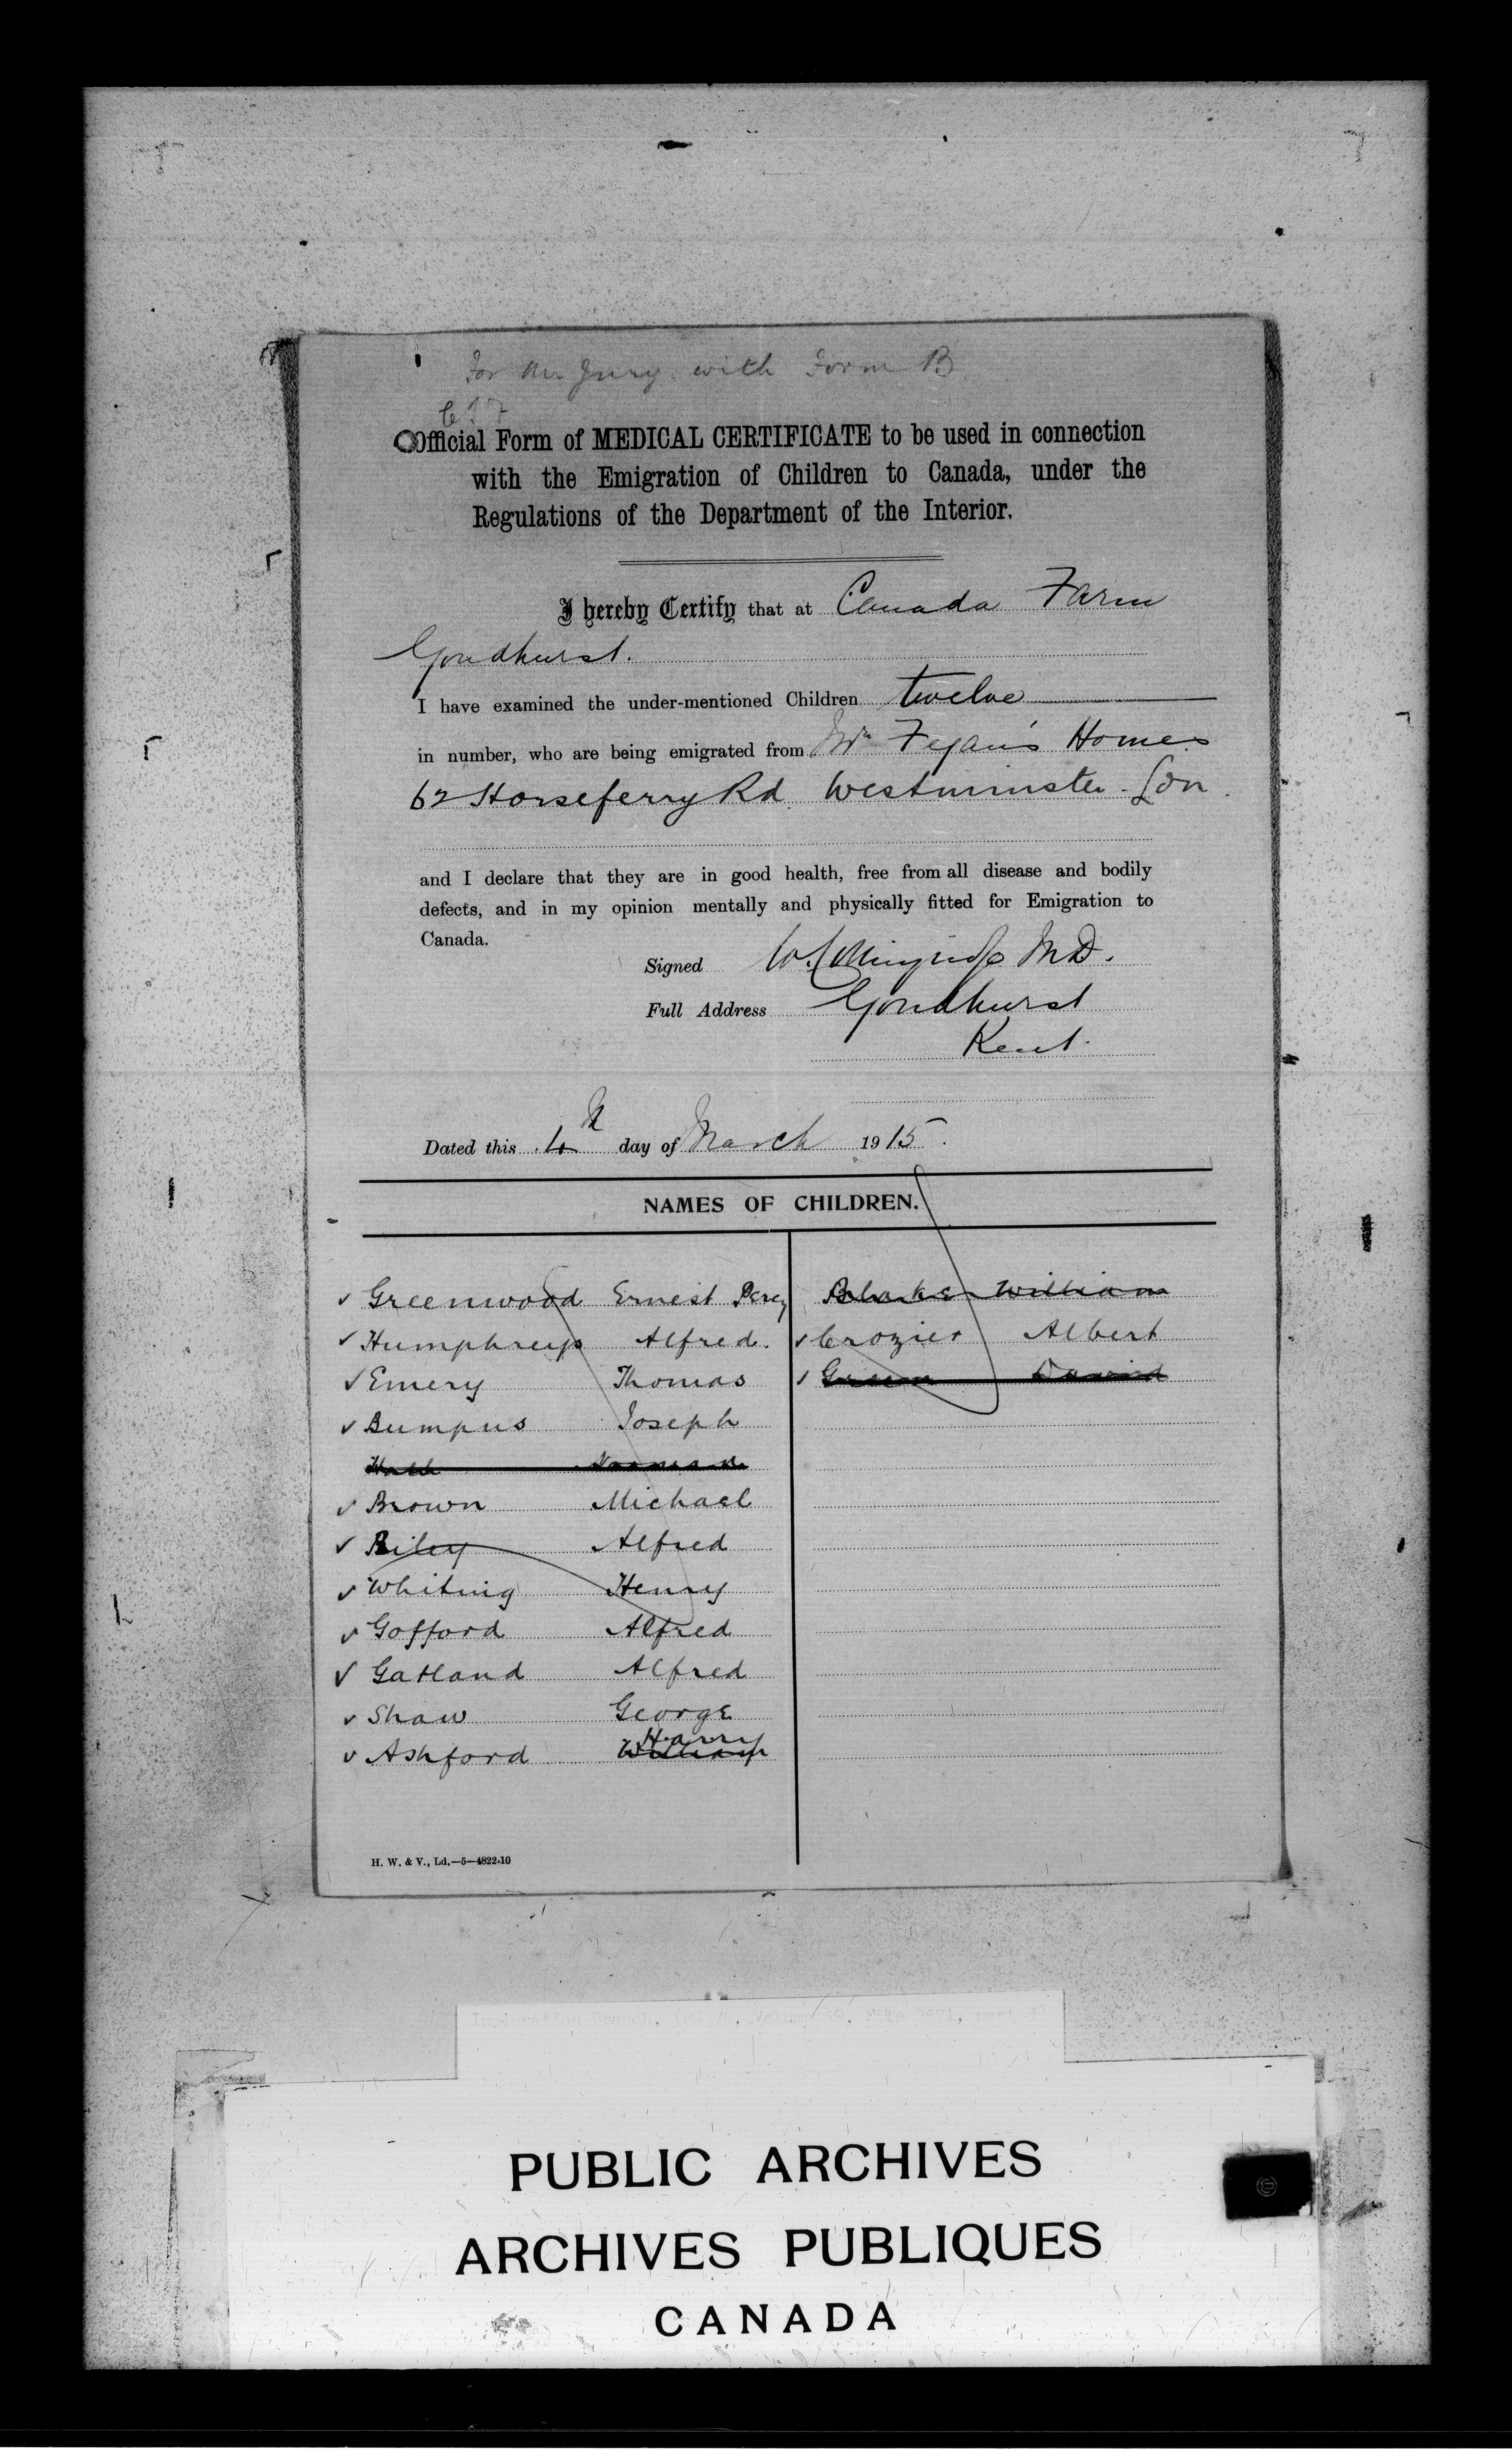 For Mr Jury with Form B
Official Form of MEDICAL CERTIFICATE to be used in connection
with the Emigration of Children to Canada, under the
Regulations of the Department of the Interior.
I hereby Certify that at Canada Farm
Goudhurst.
I have examined the under-mentioned Children twelve
in number, who are being emigrated from Mr Fegan's Homes
62 Horseferry Rd. Westminster. Lon.
and I declare that they are in good health, free from all disease and bodily
defects, and in my opinion mentally and physically fitted for Emigration to
Canada.
Signed M.D.
Full Address Goudhurst
Kent.
Dated this 4th day of March 1915.
NAMES OF CHILDREN.
✓ Greenwood Ernest Percy
✓ Humphreys Alfred.
✓ Emery Thomas
✓ Bumpus Joseph
Norman
✓ Brown Michael
✓ Riley Alfred
✓ Whiting Henry
✓ Gofford Alfred
✓ Gatland Alfred
✓ Shaw George
Harry
✓ Ashford William
William
✓ Crozier Albert
✓ Green David
H. W. & V., Ld.—5—4822.10
PUBLIC ARCHIVES
ARCHIVES PUBLIQUES
CANADA